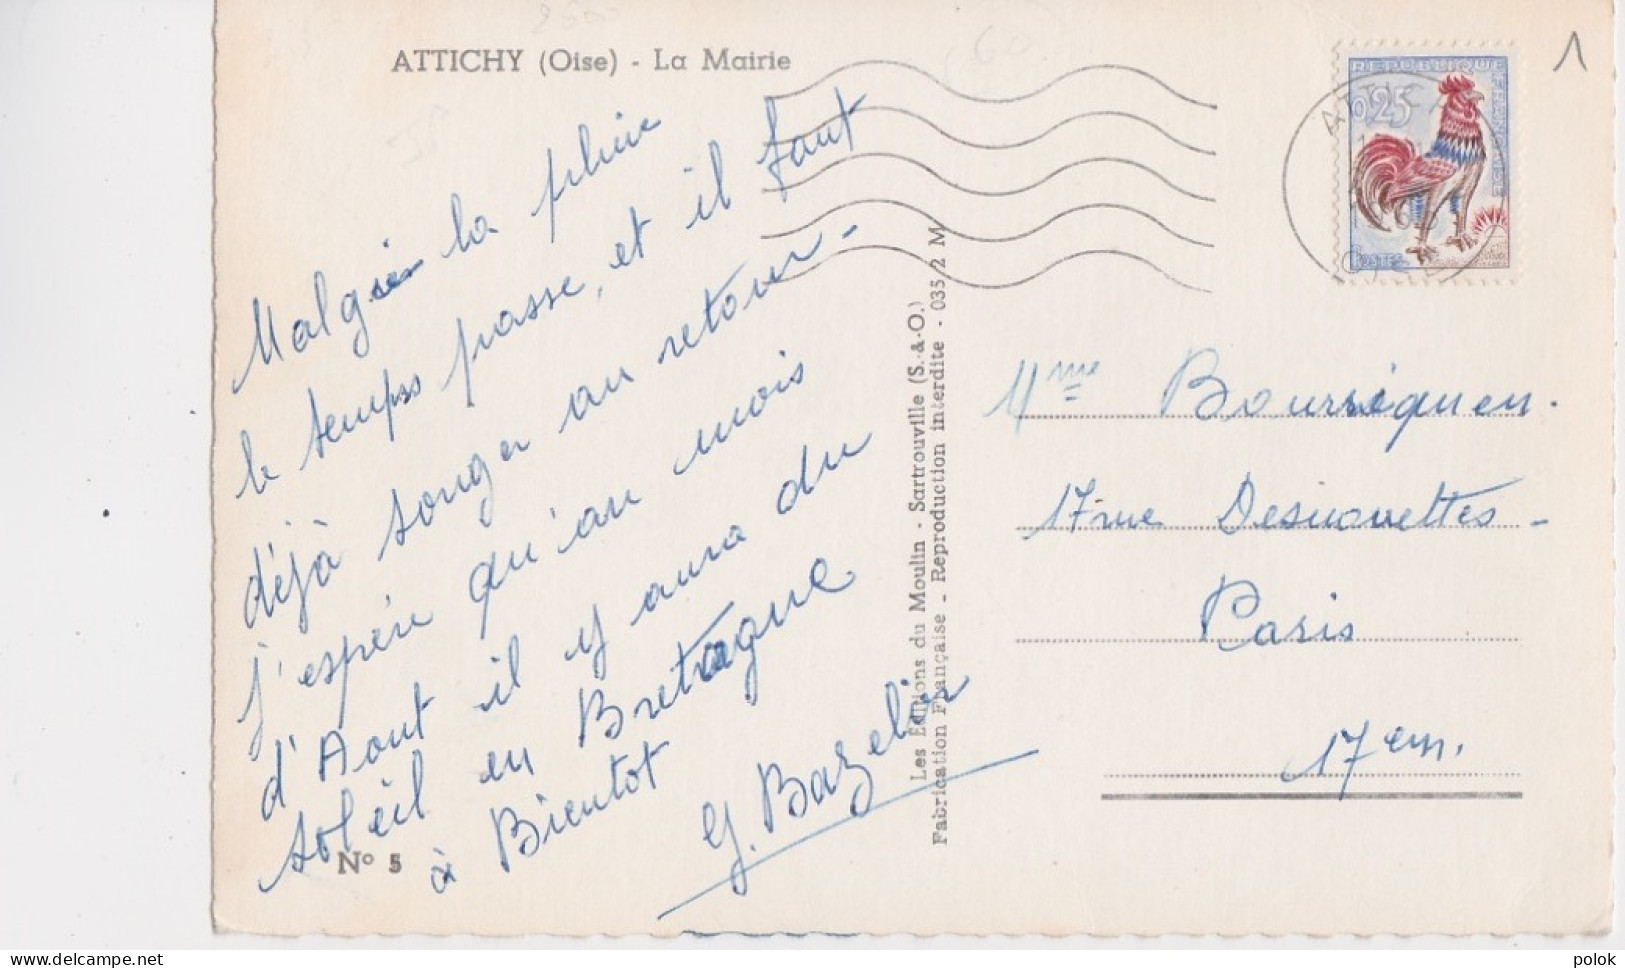 ATTICHY (Oise) - La Mairie
1
REPUBLIQUE FRANCAISE
0,25
POSTES
Malgré la pluie
le temps passe, et il faut
déjà songer au retour -
j'espère qu'au mois
d'Aout il y aura du
soleil en Bretagne
à Bientot
G. Bazelin
N° 5
Les Éditions du Moulin - Sartrouville (S.-&-O.)
Fabrication Française - Reproduction interdite - 035 2 M
Mme Bourriquen.
17 rue Desnouettes -
Paris
17em.
polok